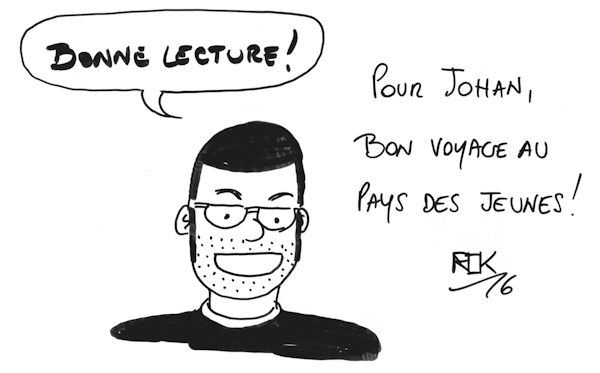 BONNE LECTURE!
POUR JOHAN,
BON VOYAGE AU
PAYS DES JEUNES!
16